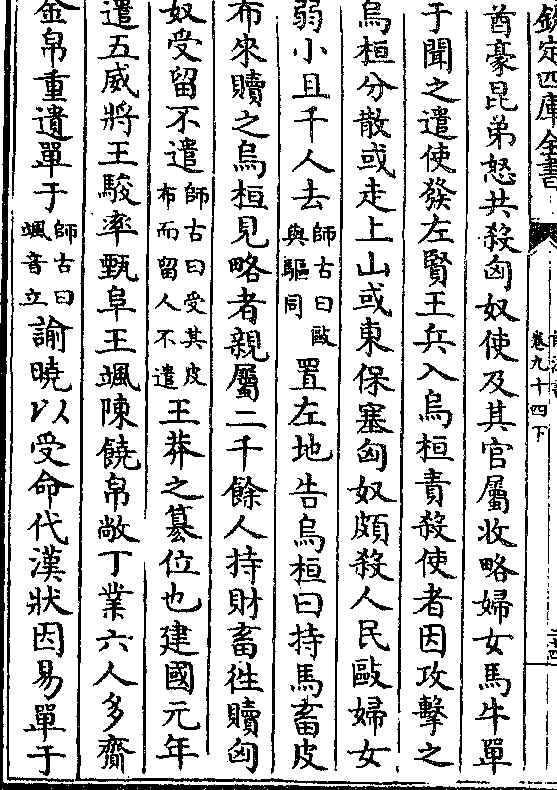 欽定四庫全書
卷九十四下
酋豪昆弟怒共殺匈奴使及其官屬收略婦女馬牛單
于聞之遣使發左賢王兵入烏桓責殺使者因攻擊之
烏桓分散或走上山或東保塞匈奴頗殺人民敺婦女
弱小且千人去師古曰敺與驅同置左地告烏桓曰持馬畜皮
布來贖之烏桓見略者親屬二千餘人持財畜徃贖匈
奴受留不遣師古曰受其皮布而留人不遣王莽之簒位也建國元年
遣五威將王駿率甄阜王颯陳饒帛敞丁業六人多齎
金帛重遺單于師古曰颯音立諭曉以受命代漢狀因易單于